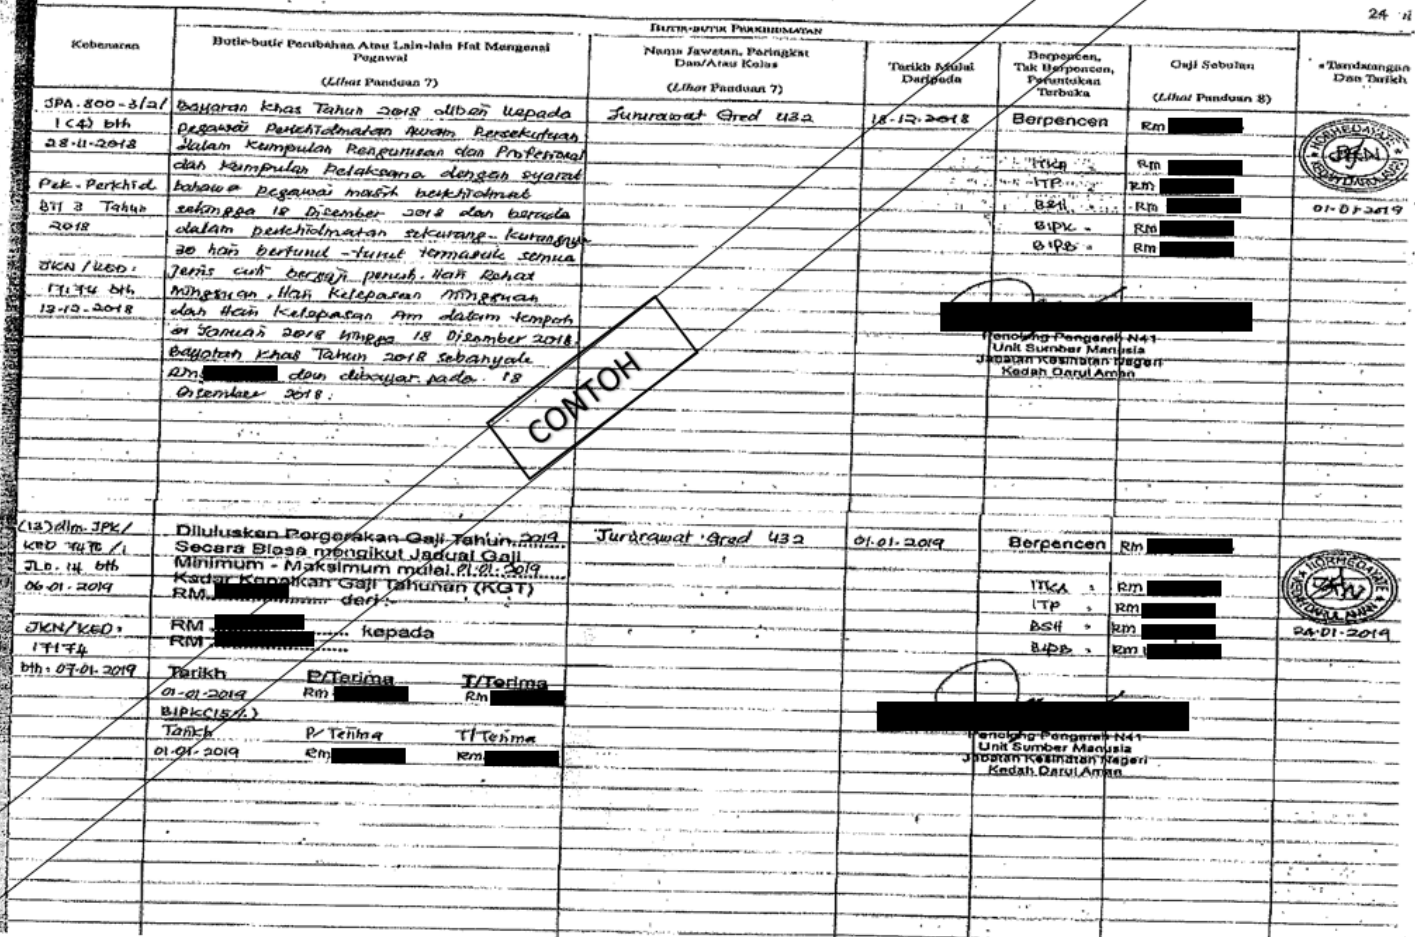 24
BUTIR-BUTIR PERKHIDMATAN
Kebenaran
Butir-butir Perubahan Atau Lain-lain Hal Mengenai
Pegawai
(Lihat Panduan 7)
Nama Jawatan, Peringkat
Dan/Atau Kelas
(Lihat Panduan 7)
Tarikh Mulai
Daripada
Berpencen,
Tak Berpencen,
Peruntukan
Terbuka
Gaji Sebulan
(Lihat Panduan 8)
*Tandatangan
Dan Tarikh
JPA.800-3/2/
1(4) bth
28-11-2018
Pek. Perkhid
Bil 3 Tahun
2018
JKN/KED:
17174 bth
12-12-2018
Bayaran Khas Tahun 2018 diberi kepada
Pegawai Perkhidmatan Awam Persekutuan
dalam Kumpulan Pengurusan dan Profesional
dan Kumpulan Pelaksana dengan syarat
bahawa pegawai masih berkhidmat
sehingga 18 Disember 2018 dan berada
dalam perkhidmatan sekurang-kurangnya
30 hari berturut-turut termasuk semua
jenis cuti bergaji penuh, Hari Rehat
Mingguan, Hari Kelepasan Mingguan
dan Hari Kelepasan Am dalam tempoh
01 Januari 2018 hingga 18 Disember 2018.
Bayaran Khas Tahun 2018 sebanyak
RM dan dibayar pada 18
Disember 2018.
Jururawat Gred U32
18-12-2018
Berpencen Rm
ITKA Rm
ITP Rm
BSH Rm
BIPK Rm
BIPB Rm
01-01-2019
Penolong Pengarah N41
Unit Sumber Manusia
Jabatan Kesihatan Negeri
Kedah Darul Aman
CONTOH
(12)dlm. JPK/
KED
JLD. 14 bth
06-01-2019
JKN/KED:
17174
bth: 07-01-2019
Diluluskan Pergerakan Gaji Tahun 2019
Secara Biasa mengikut Jadual Gaji
Minimum - Maksimum mulai 01-01-2019
Kadar Kenaikan Gaji Tahunan (KGT)
RM deri:-
RM
RM kepada
Tarikh P/Terima T/Terima
01-01-2019 Rm Rm
BIPK(15%)
Tarikh P/Terima T/Terima
01-01-2019 Rm Rm
Jururawat Gred U32
01.01.2019
Berpencen Rm
ITKA Rm
ITP Rm
BSH Rm
BIPB Rm
24-01-2019
Penolong Pengarah N41
Unit Sumber Manusia
Jabatan Kesihatan Negeri
Kedah Darul Aman